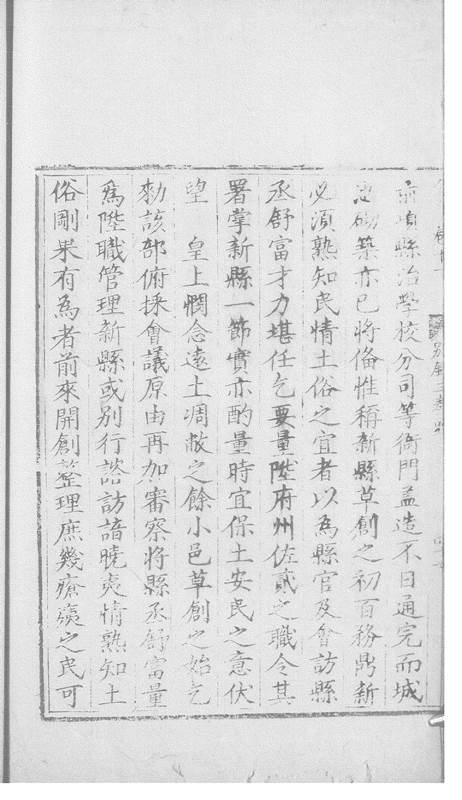 前項縣治學校分司等衙門蓋造不日通完而城
池砌築亦已將備惟稱新縣草創之初百務鼎新
必須熟知民情土俗之宜者以為縣官及會訪縣
丞舒富才力堪任乞要量陞府州佐貳之職令其
署掌新縣一節實亦酌量時宜保土安民之意伏
望　皇上憫念遠土凋敝之餘小邑草創之始乞
勑該部俯採會議原由再加審察將縣丞舒富量
為陞職管理新縣或別行諮訪諳曉夷情熟知土
俗剛果有為者前來開創整理庶幾瘡痍之民可